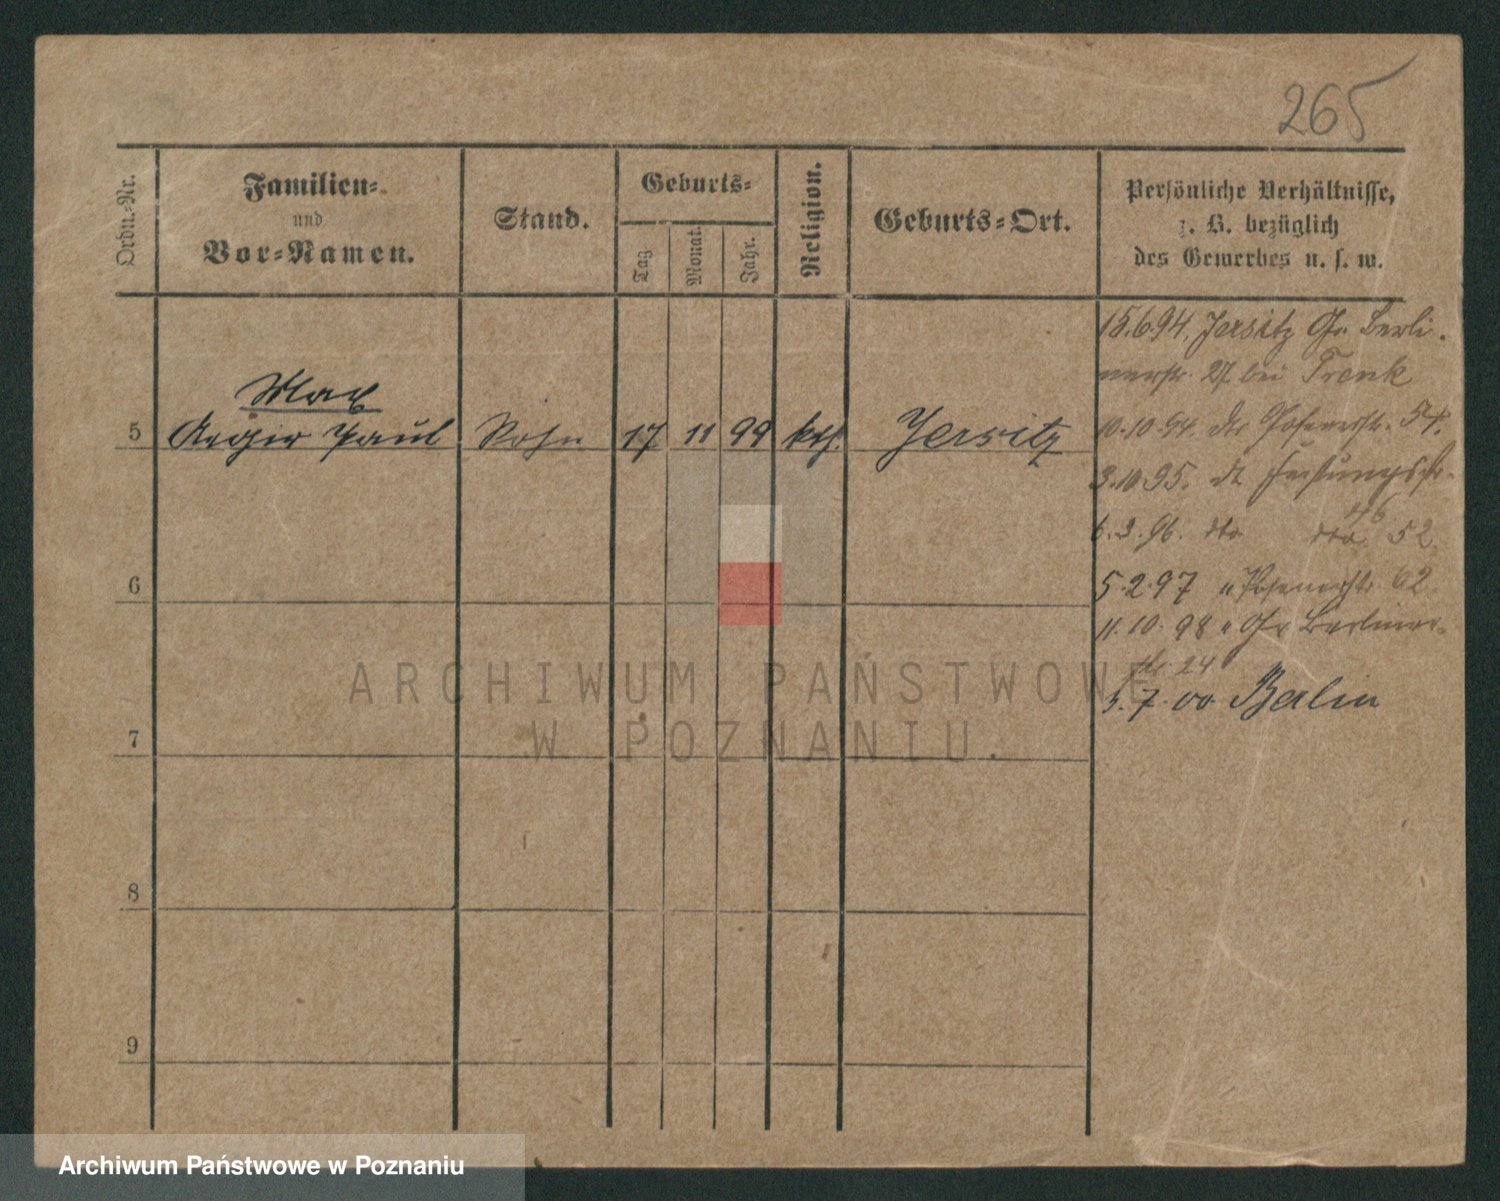 265
Ordn.-Nr.
Familien-
und
Vor-Namen.
Stand.
Geburts-
Tag
Monat.
Jahr.
Religion.
Geburts-Ort.
Persönliche Verhältnisse,
z. B. bezüglich
des Gewerbes u. s. w.
15.6.94. Jersitz Gr. Berli-
nerstr. 27 bei Trenk
10.10.94. dto Posenerstr. 54.
3.10.95. dto Festungsstr.
46
6.3.96. dto dto 52
5.2.97 " Posenerstr. 62
11.10.98 " Gr. Berliner-
str. 24
5.7.00 Berlin
Max
5 Paul Sohn 17 11 99 kth. Jersitz
6
7
8
9
ARCHIWUM PAŃSTWOWE
W POZNANIU.
Archiwum Państwowe w Poznaniu